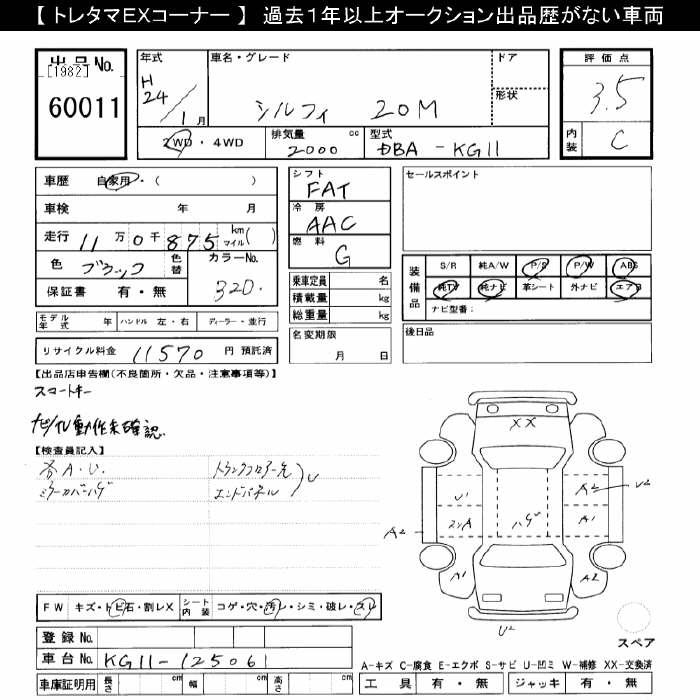 【 トレタマEXコーナー 】 過去1年以上オークション出品歴がない車両
出品No.
[1982]
60011
年式
H
24/1月
車名・グレード
シルフィ 20M
ドア
形状
2WD・4WD
排気量 cc
2000
型式
DBA - KG11
評価点
3.5
内装
C
車歴 自家用・( )
車検 年 月
走行 11万0千875 km マイル( )
色 ブラック 色替
カラーNo.
320
保証書 有・無
シフト
FAT
冷房
AAC
燃料
G
乗車定員 名
積載量 kg
総重量 kg
セールスポイント
装備品
S/R 純A/W P/S P/W ABS
純TV 純ナビ 革シート 外ナビ エアB
ナビ型番:
モデル年式 年 ハンドル 左・右 ディーラー・並行
リサイクル料金 11570 円 預託済
名変期限
月 日
後日品
【出品店申告欄(不良箇所・欠品・注意事項等)】
スマートキー
ナビTV動作未確認
【検査員記入】
各A・U.
ミラーカバーハゲ
トランクフロアー先
エンドパネル
U
XX
U1
A2
U2
A2
ハゲ
A1
A1
A2
U2
スペア
FW キズ・トビ石・割レX
シート内装 コゲ・穴・汚レ・シミ・破レ・スレ
登録No.
車台No. KG11-125061
車庫証明用 長さ cm 幅 cm 高さ cm
A-キズ C-腐食 E-エクボ S-サビ U-凹ミ W-補修 XX-交換済
工具 有・無 ジャッキ 有・無